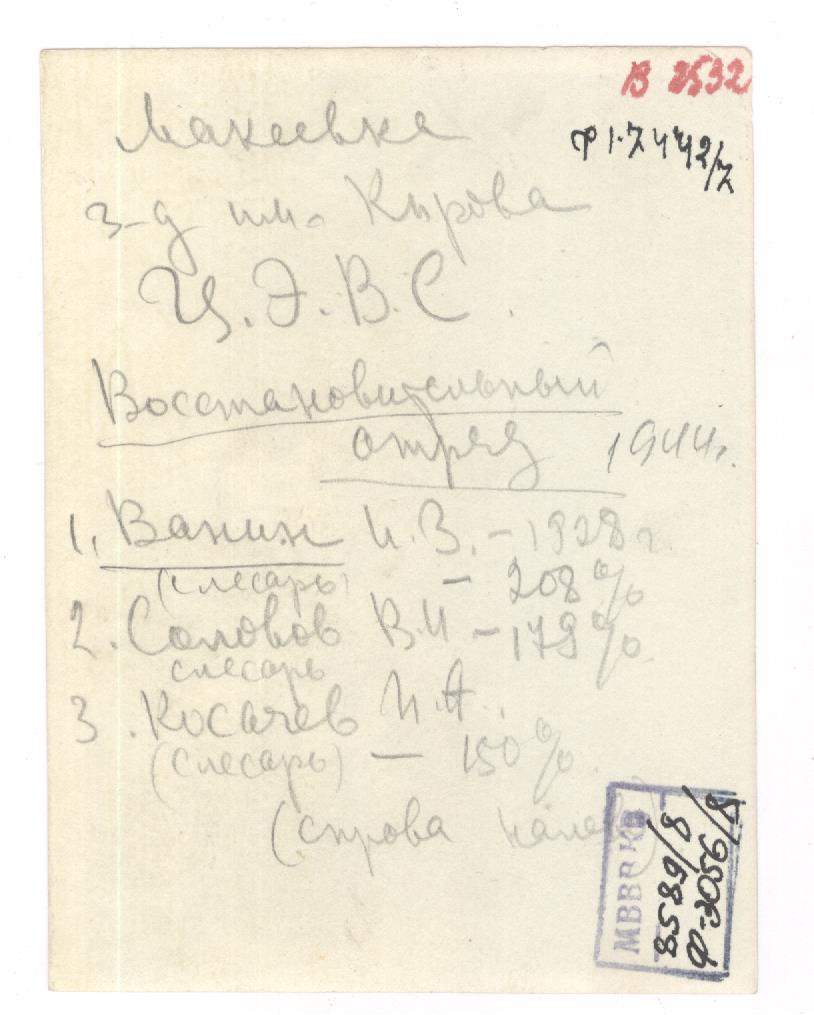 В 2532
Ф 1-7442/7
Макеевка
З-д им. Кирова
Ц.Э.В.С.
Восстановительный
отряд 1944г.
1. Ванин И.В. – 1928 г.
(слесарь) – 208%
2. Соловов В.И – 179%
слесарь
3. Косачев И.А.
(слесарь) – 150%.
(справа
МВВВ КВ
8589/8
Ф-3056/8